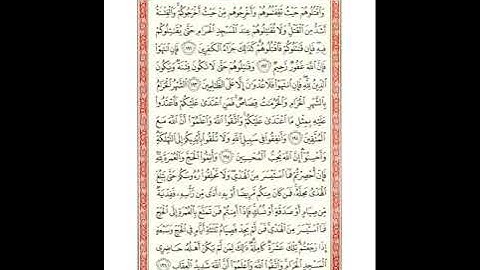 وَٱقۡتُلُوهُمۡ حَيۡثُ ثَقِفۡتُمُوهُمۡ وَأَخۡرِجُوهُم مِّنۡ حَيۡثُ أَخۡرَجُوكُمۡۚ وَٱلۡفِتۡنَةُ
أَشَدُّ مِنَ ٱلۡقَتۡلِۚ وَلَا تُقَٰتِلُوهُمۡ عِندَ ٱلۡمَسۡجِدِ ٱلۡحَرَامِ حَتَّىٰ يُقَٰتِلُوكُمۡ
فِيهِۖ فَإِن قَٰتَلُوكُمۡ فَٱقۡتُلُوهُمۡۗ كَذَٰلِكَ جَزَآءُ ٱلۡكَٰفِرِينَ ١٩١ فَإِنِ ٱنتَهَوۡاْ
فَإِنَّ ٱللَّهَ غَفُورٞ رَّحِيمٞ ١٩٢ وَقَٰتِلُوهُمۡ حَتَّىٰ لَا تَكُونَ فِتۡنَةٞ وَيَكُونَ
ٱلدِّينُ لِلَّهِۖ فَإِنِ ٱنتَهَوۡاْ فَلَا عُدۡوَٰنَ إِلَّا عَلَى ٱلظَّٰلِمِينَ ١٩٣ ٱلشَّهۡرُ ٱلۡحَرَامُ
بِٱلشَّهۡرِ ٱلۡحَرَامِ وَٱلۡحُرُمَٰتُ قِصَاصٞۚ فَمَنِ ٱعۡتَدَىٰ عَلَيۡكُمۡ فَٱعۡتَدُواْ
عَلَيۡهِ بِمِثۡلِ مَا ٱعۡتَدَىٰ عَلَيۡكُمۡۚ وَٱتَّقُواْ ٱللَّهَ وَٱعۡلَمُوٓاْ أَنَّ ٱللَّهَ مَعَ
ٱلۡمُتَّقِينَ ١٩٤ وَأَنفِقُواْ فِي سَبِيلِ ٱللَّهِ وَلَا تُلۡقُواْ بِأَيۡدِيكُمۡ إِلَى ٱلتَّهۡلُكَةِ
وَأَحۡسِنُوٓاْۚ إِنَّ ٱللَّهَ يُحِبُّ ٱلۡمُحۡسِنِينَ ١٩٥ وَأَتِمُّواْ ٱلۡحَجَّ وَٱلۡعُمۡرَةَ لِلَّهِۚ
فَإِنۡ أُحۡصِرۡتُمۡ فَمَا ٱسۡتَيۡسَرَ مِنَ ٱلۡهَدۡيِۖ وَلَا تَحۡلِقُواْ رُءُوسَكُمۡ حَتَّىٰ يَبۡلُغَ
ٱلۡهَدۡيُ مَحِلَّهُۥۚ فَمَن كَانَ مِنكُم مَّرِيضًا أَوۡ بِهِۦٓ أَذٗى مِّن رَّأۡسِهِۦ فَفِدۡيَةٞ
مِّن صِيَامٍ أَوۡ صَدَقَةٍ أَوۡ نُسُكٖۚ فَإِذَآ أَمِنتُمۡ فَمَن تَمَتَّعَ بِٱلۡعُمۡرَةِ إِلَى ٱلۡحَجِّ
فَمَا ٱسۡتَيۡسَرَ مِنَ ٱلۡهَدۡيِۚ فَمَن لَّمۡ يَجِدۡ فَصِيَامُ ثَلَٰثَةِ أَيَّامٖ فِي ٱلۡحَجِّ وَسَبۡعَةٍ
إِذَا رَجَعۡتُمۡۗ تِلۡكَ عَشَرَةٞ كَامِلَةٞۗ ذَٰلِكَ لِمَن لَّمۡ يَكُنۡ أَهۡلُهُۥ حَاضِرِي
ٱلۡمَسۡجِدِ ٱلۡحَرَامِۚ وَٱتَّقُواْ ٱللَّهَ وَٱعۡلَمُوٓاْ أَنَّ ٱللَّهَ شَدِيدُ ٱلۡعِقَابِ ١٩٦